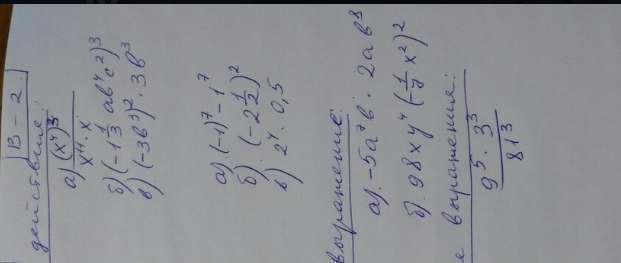 В-2.
действие:
а) (x⁴)³ / x¹¹·x
б) (-1 1/3 ab⁴c²)³
в) (-3b³)²·3b³
а) (-1)⁷-1⁷
б) (-2 1/2)²
в) 2⁴·0,5
выражение:
а). -5a²b·2ab⁸
б). 98xy⁴(-1/7 x²)²
е выражения:
9⁵·3³ / 81³